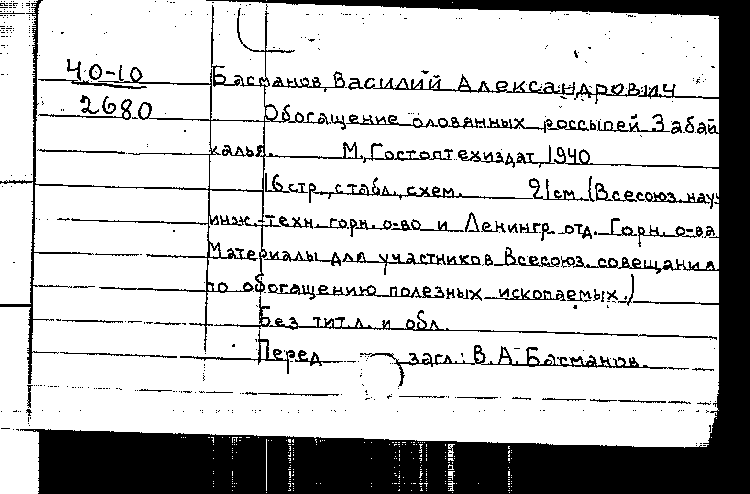 40-10
2680
Басманов, Василий Александрович
Обогащение оловянных россыпей Забай
калья. М, Гостоптехиздат, 1940
16 стр, с табл., схем. 21 см. (Всесоюз. науч-
инж.-техн. горн. о-во и Ленингр. отд. Горн. о-ва
Материалы для участников Всесоюз. совещания
по обогащению полезных ископаемых.)
Без тит. л. и обл.
Перед загл.: В. А. Басманов.